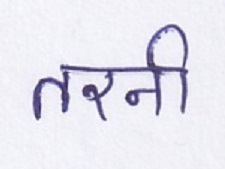 तरनी